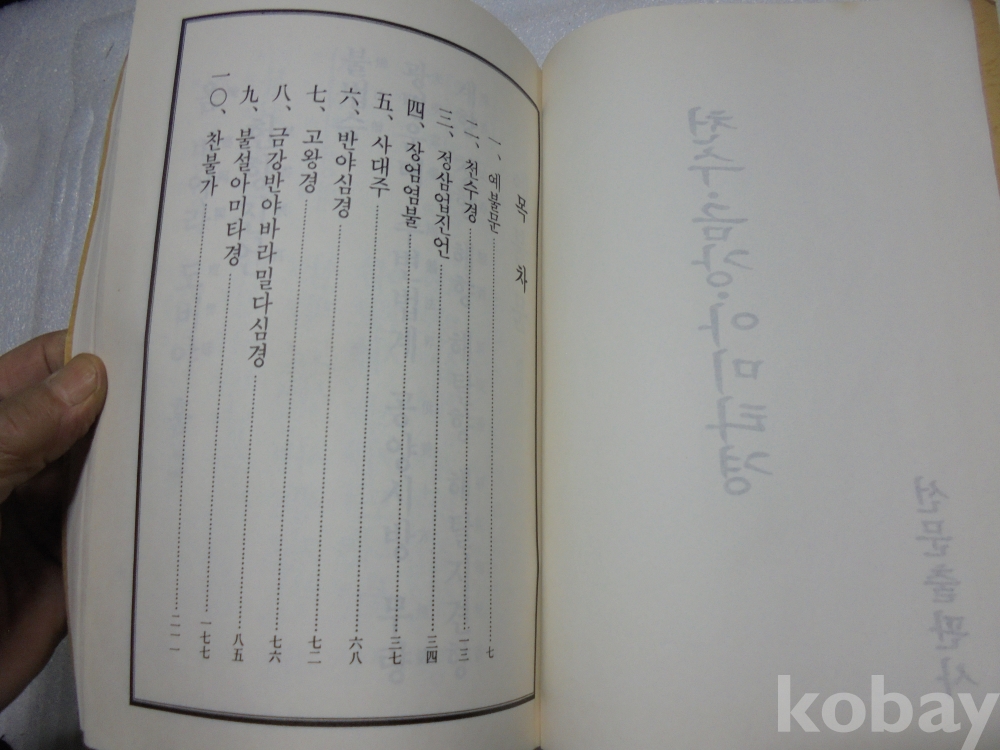 목차
一、예불문 七
二、천수경 一三
三、정삼업진언 三四
四、장엄염불 三七
五、사대주 六八
六、반야심경 七二
七、고왕경 七六
八、금강반야바라밀다심경 八五
九、불설아미타경 一七七
一〇、찬불가 二一一
선문출판사
kobay